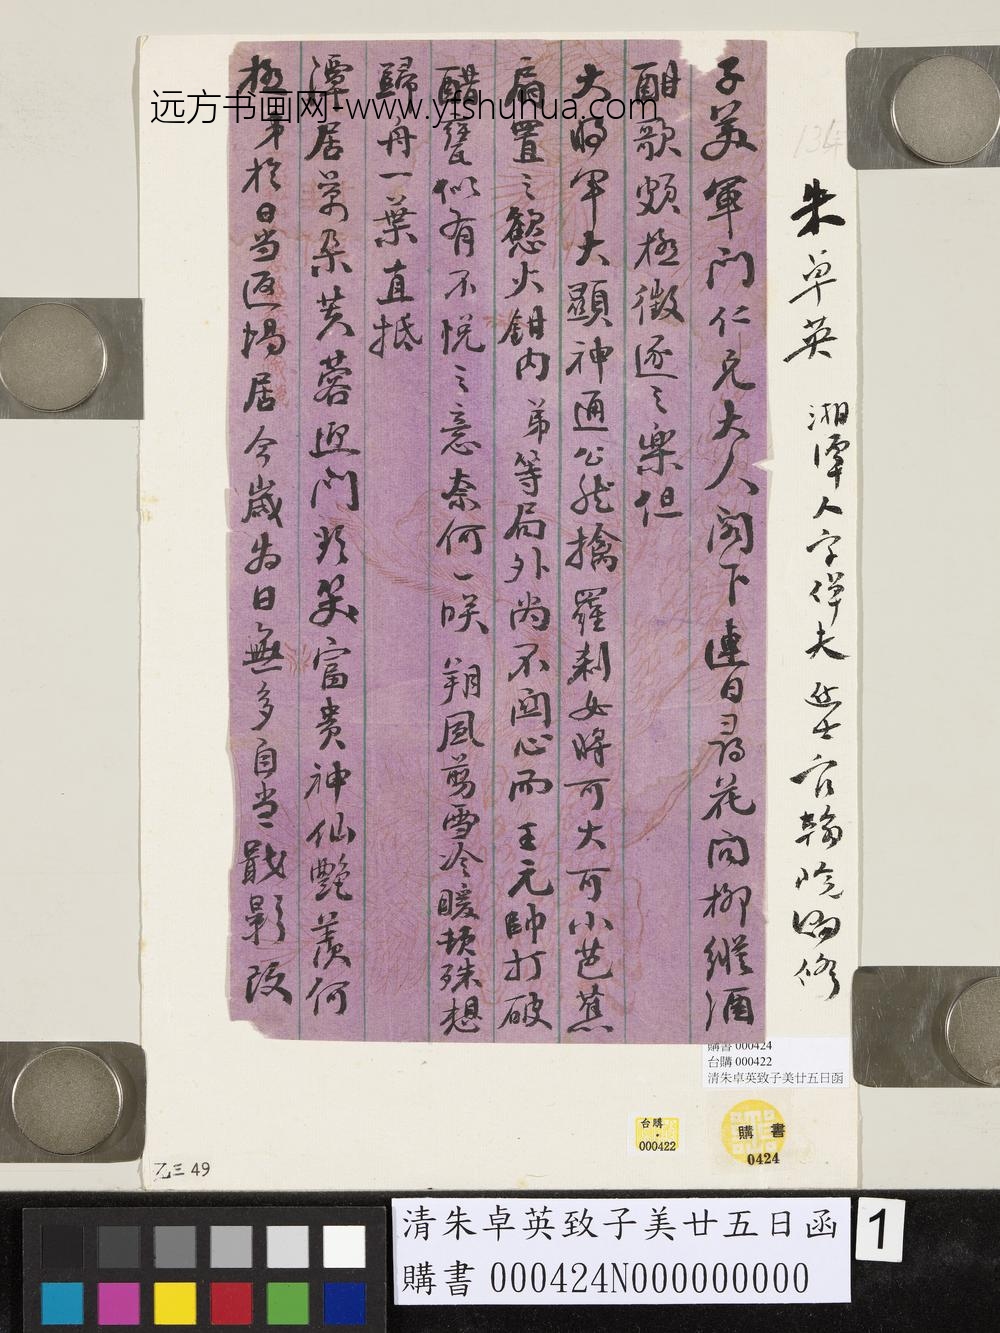 子美軍門仁兄大人閣下連日尋花問柳縱酒
酣歌頗極徵逐之樂但
大將軍大顯神通公然擒羅剎女將可大可小芭蕉
扇置之慾火鉗內弟等局外尚不關心而王元帥打破
醋甕似有不悅之意奈何一咲朔風剪雪冷暖頓殊想
歸舟一葉直抵
潭居萬朵芙蓉迎門歡笑富貴神仙艷羨何
極弟於日當返塲居今歲為日無多自当戢影
朱卓英
湘潭人字倬夫進士官翰院編修
134
远方书画网-www.yfshuhua.com
購書 000424
台購 000422
清朱卓英致子美廿五日函
台購
000422
購書
0424
乙三 49
清朱卓英致子美廿五日函
購書 000424N000000000
1